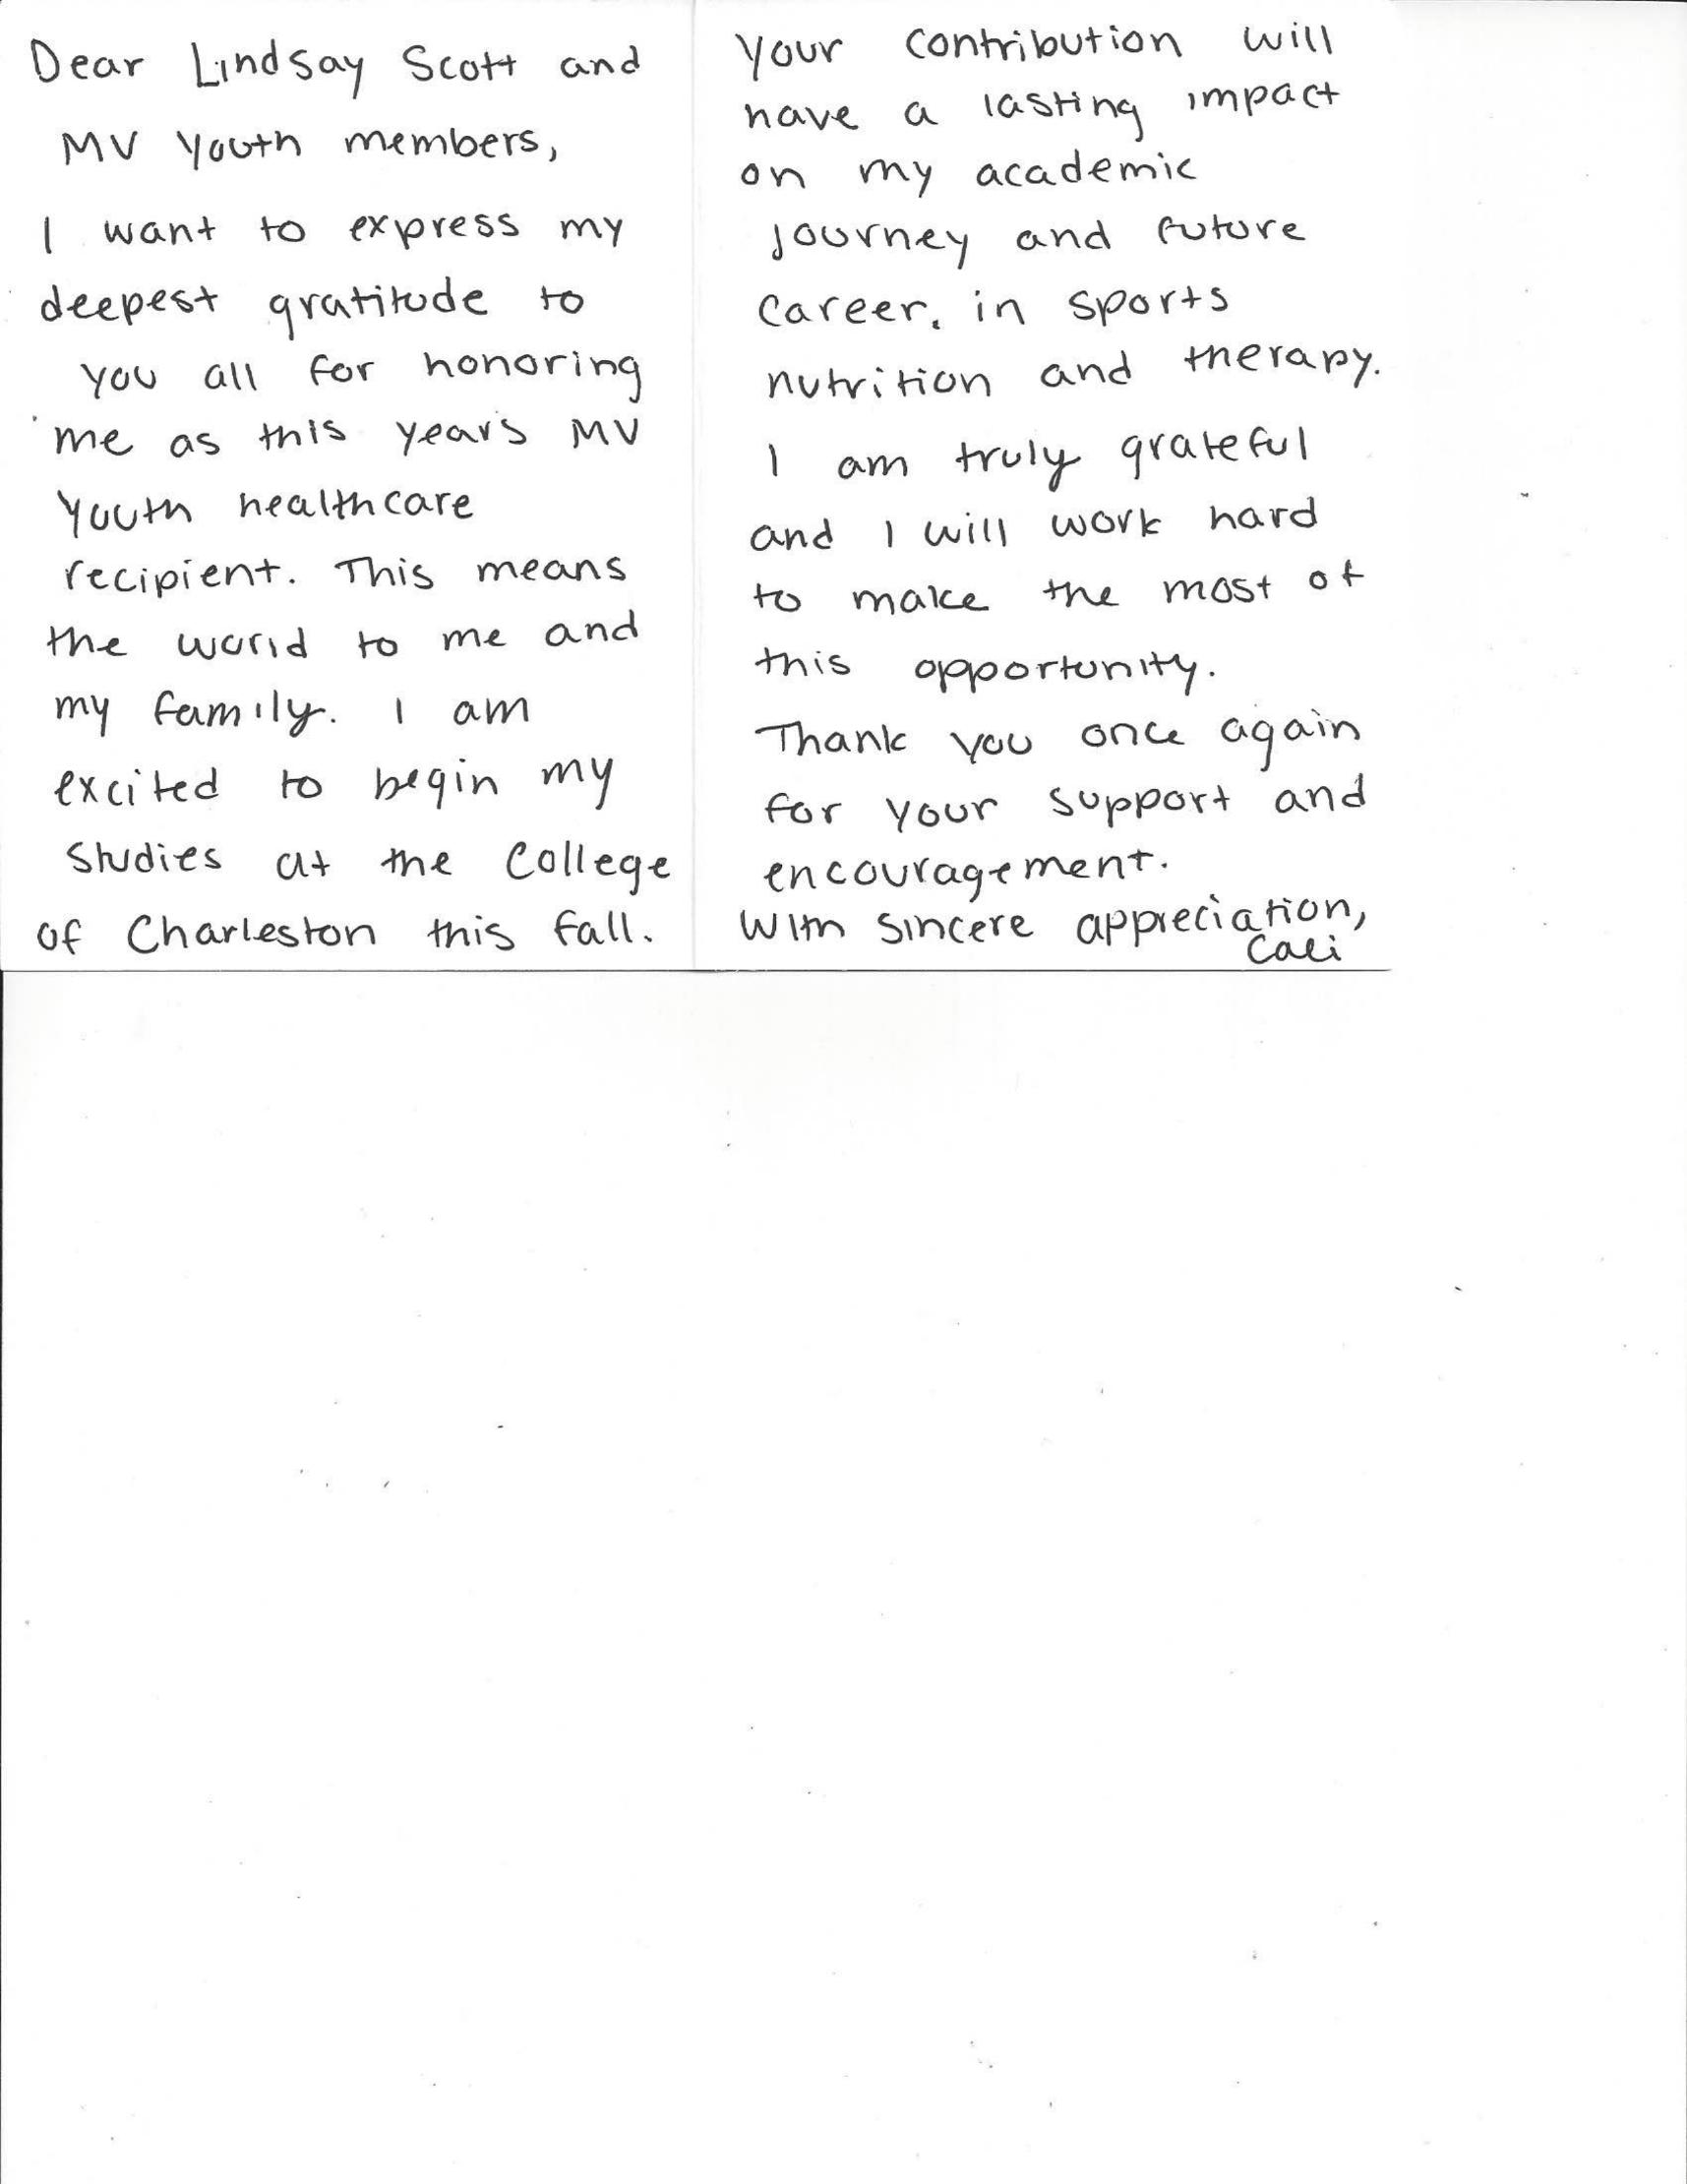 Dear Lindsay Scott and
MV Youth members,
I want to express my
deepest gratitude to
you all for honoring
me as this years MV
Youth healthcare
recipient. This means
the world to me and
my family. I am
excited to begin my
studies at the College
of Charleston this fall.
Your contribution will
have a lasting impact
on my academic
journey and future
career. in sports
nutrition and therapy.
I am truly grateful
and I will work hard
to make the most of
this opportunity.
Thank you once again
for your support and
encouragement.
With sincere appreciation,
Cali